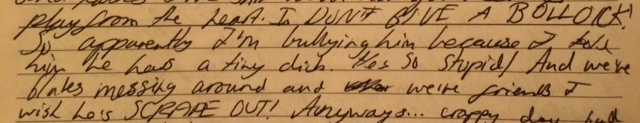 play from the heart. In DON'T GIVE A BOLLOCK!
So apparently I'm bullying him because I told
him he has a tiny dick. Hes So Stupid! And we're
blates messing around and we're friends I
wish he's SCRAPE OUT! Anyways... crappy day had